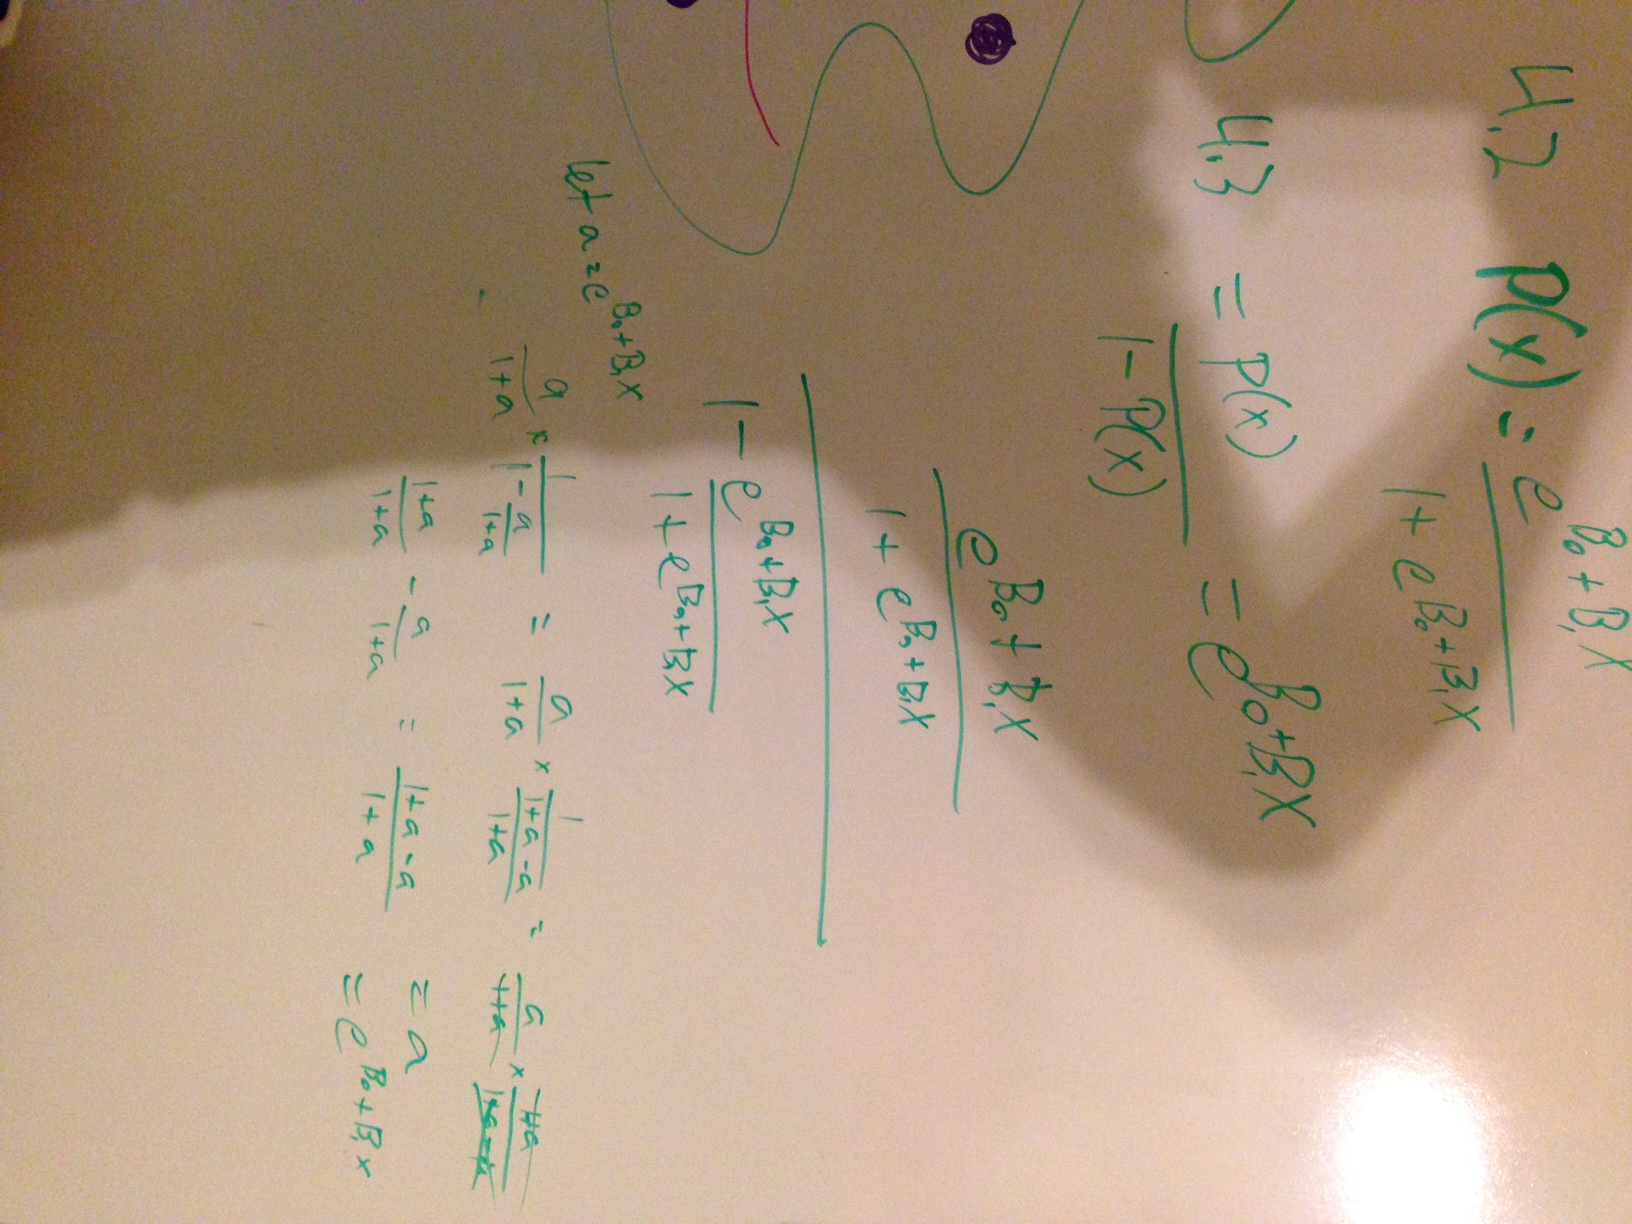 4.2 P(x) = e^{B₀ + B₁X} / (1 + e^{B₀ + B₁X})
4.3 = P(x) / (1 - P(x)) = e^{B₀ + B₁X}
(e^{B₀ + B₁X} / (1 + e^{B₀ + B₁X})) / (1 - e^{B₀ + B₁X} / (1 + e^{B₀ + B₁X}))
let a = e^{B₀ + B₁X}
a/(1+a) × 1/(1 - a/(1+a)) = a/(1+a) × 1/((1+a-a)/(1+a)) = a/(1+a) × (1+a)/(1+a-a)
(1+a)/(1+a) - a/(1+a) = (1+a-a)/(1+a)
= a
= e^{B₀ + B₁x}